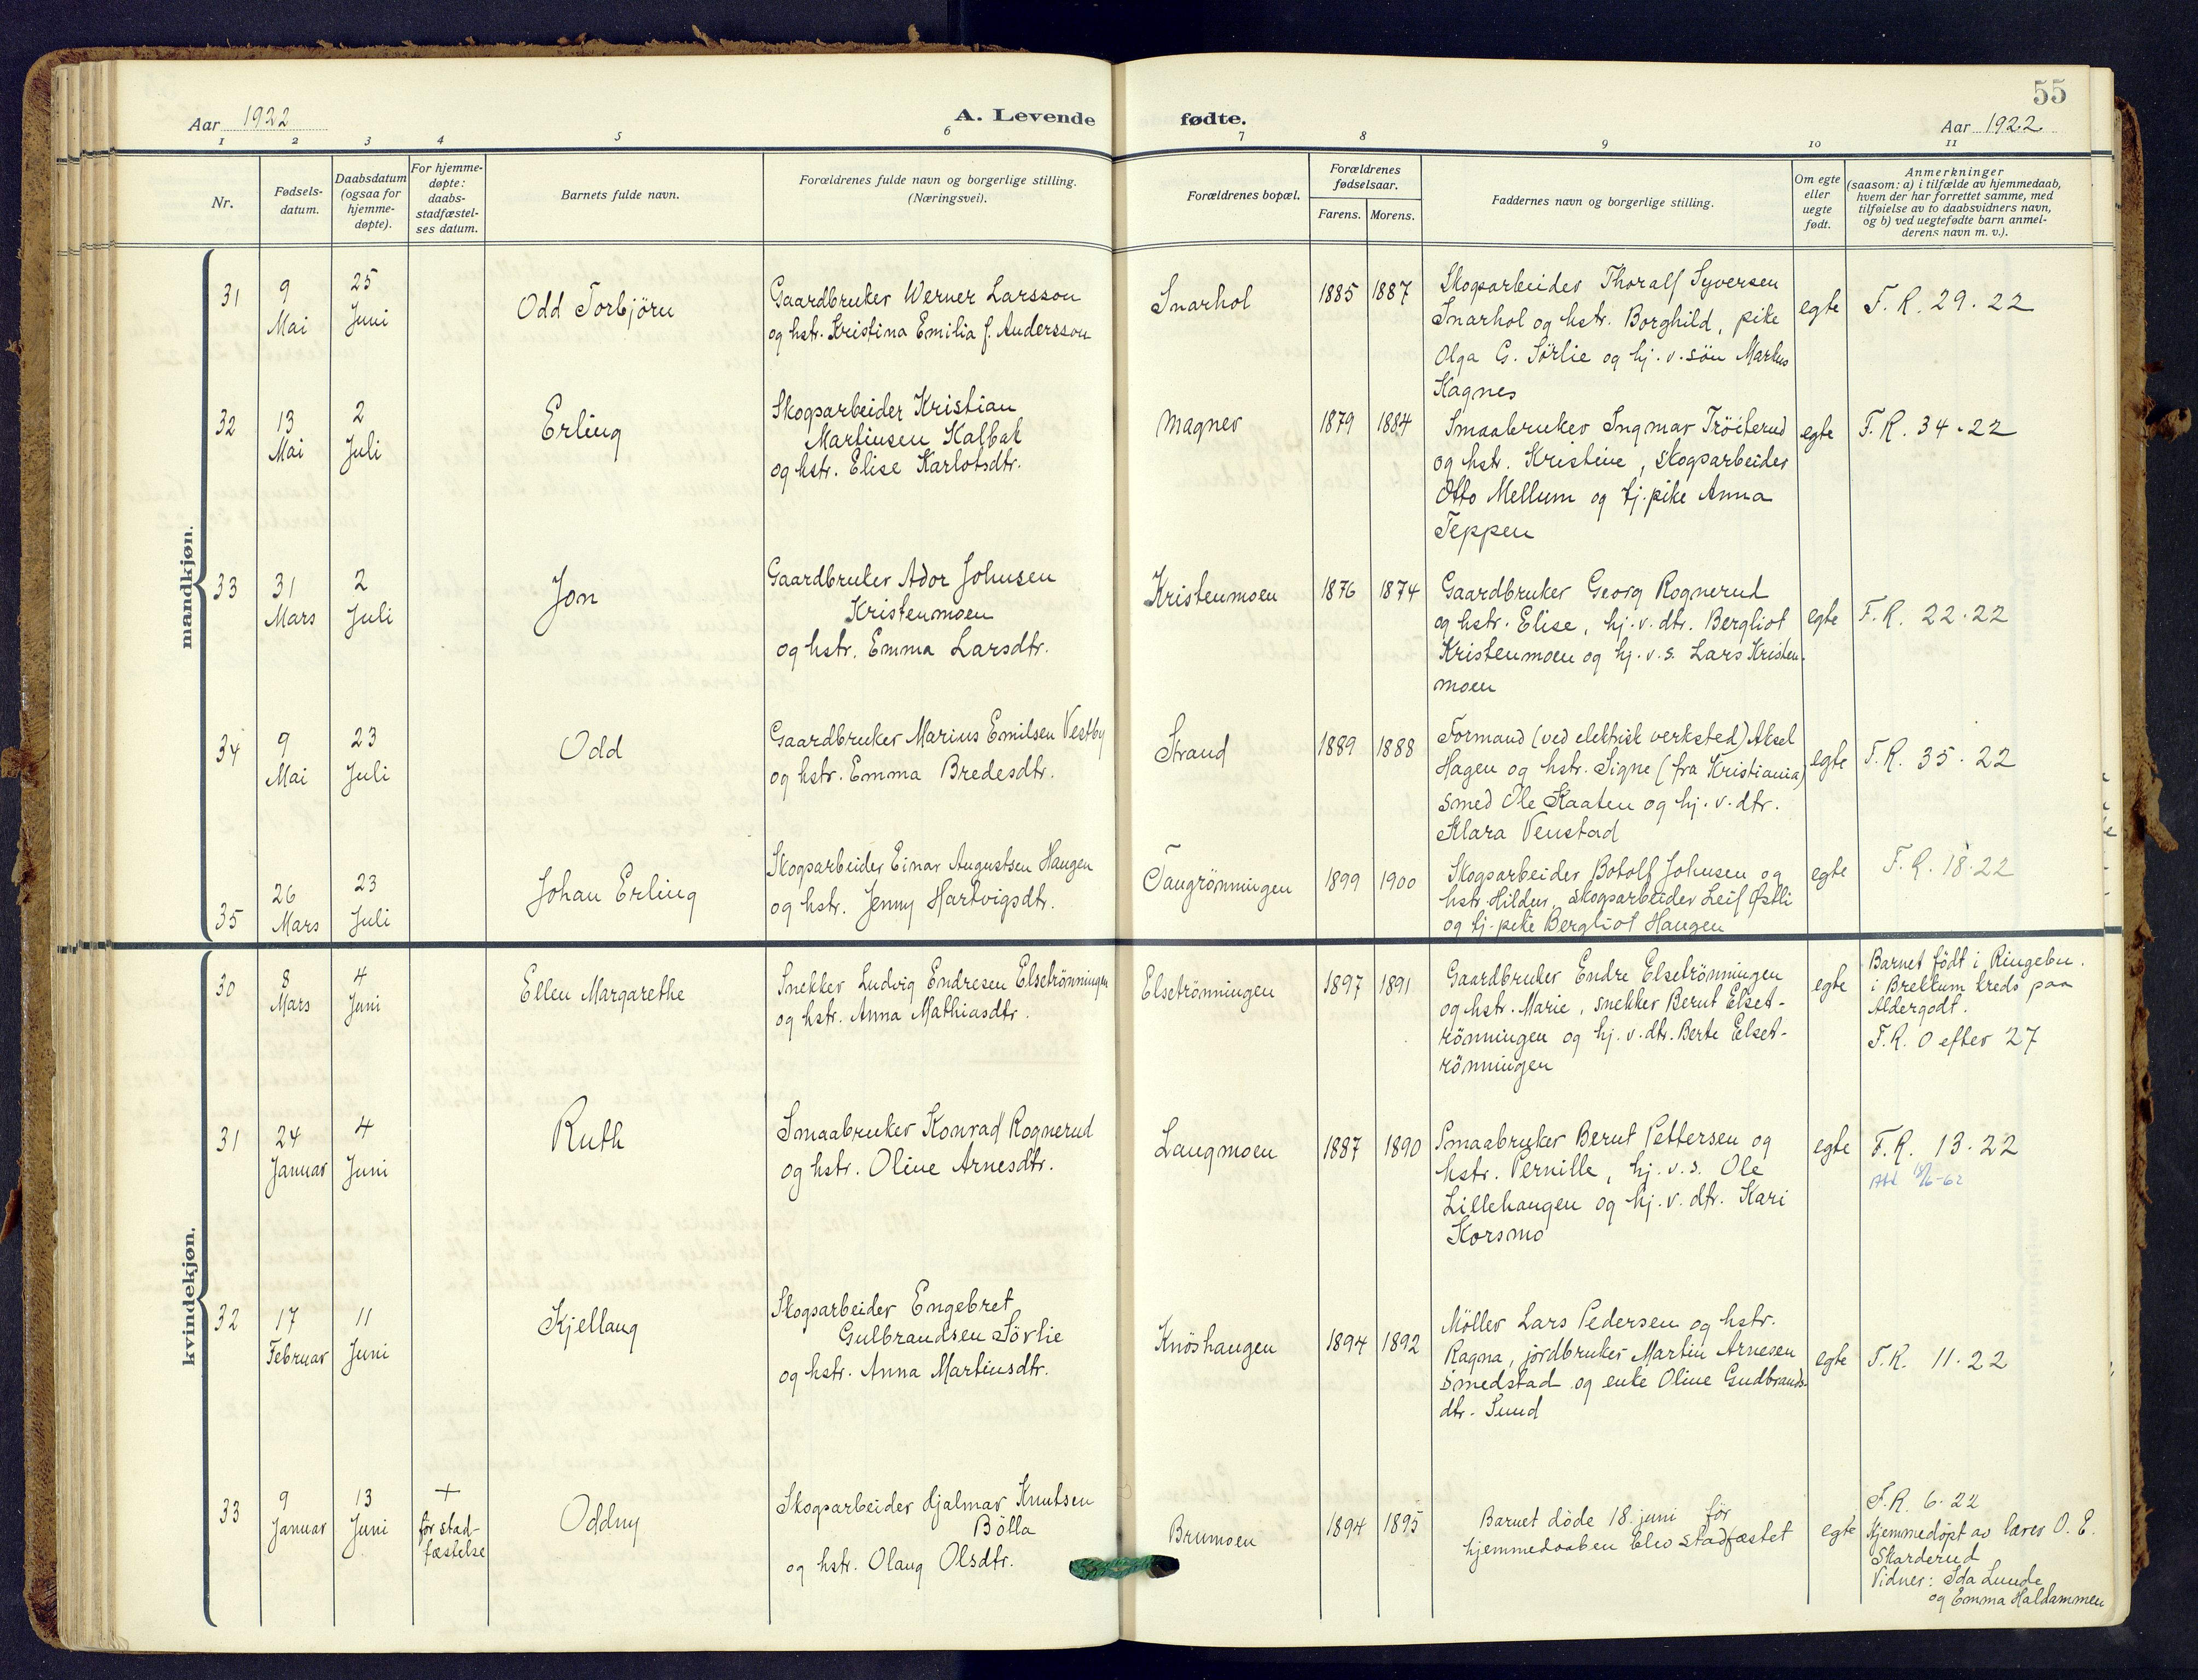 55
Aar 1922
A. Levende fødte.
Aar 1922
1 2 3 4 5 6 7 8 9 10 11
Nr.
Fødsels-
datum.
Daabsdatum
(ogsaa for
hjemme-
døpte).
For hjemme-
døpte:
daabs-
stadfæstel-
ses datum.
Barnets fulde navn.
Forældrenes fulde navn og borgerlige stilling.
(Næringsvei).
Forældrenes bopæl.
Forældrenes
fødselsaar.
Farens. Morens.
Faddernes navn og borgerlige stilling.
Om egte
eller
uegte
født.
Anmerkninger
(saasom: a) i tilfælde av hjemmedaab,
hvem der har forrettet samme, med
tilføielse av to daabsvidners navn,
og b) ved uegtefødte barn anmel-
derens navn m. v.).
mandkjøn.
31
9
Mai
25
Juni
Odd Torbjörn
Gaardbruker Werner Larsson
og hstr. Kristina Emilia f. Andersson
Snarhol
1885 1887
Skogsarbeider Thoralf Syversen
Snarhol og hstr. Borghild, pike
Olga G. Sørlie og hj. v. sön Markus
Kagnes
egte
F. R. 29. 22
32
13
Mai
2
Juli
Erling
Skogsarbeider Kristian
Martinsen Kalbak
og hstr. Elise Karlotsdtr.
Magner
1879 1884
Smaabruker Ingmar Tröiterud
og hstr. Kristine, skogsarbeider
Otto Mellum og tj. pike Anna
Teppen
egte
F. R. 34. 22
33
31
Mars
2
Juli
Jon
Gaardbruker Ador Johnsen
Kristenmoen
og hstr. Emma Larsdtr.
Kristenmoen
1876 1874
Gaardbruker Georg Rognerud
og hstr. Elise, hj. v. dtr. Bergliot
Kristenmoen og hj. v. s. Lars Kristen-
moen
egte
F. R. 22. 22
34
9
Mai
23
Juli
Odd
Gaardbruker Marius Emilsen Vestby
og hstr. Emma Bredesdtr.
Strand
1889 1888
Formand (ved elektrisk verksted) Aksel
Hagen og hstr. Signe (fra Kristiania)
smed Ole Kaaten og hj. v. dtr.
Klara Venstad
egte
F. R. 35. 22
35
26
Mars
23
Juli
Johan Erling
Skogsarbeider Einar Augustsen Haugen
og hstr. Jenny Hartvigsdtr.
Taugrönningen
1899 1900
Skogsarbeider Botolf Johnsen og
hstr. Hildur, skogsarbeider Leif Østli
og tj. pike Bergliot Haugen
egte
F. R. 18. 22
kvindekjøn.
30
8
Mars
4
Juni
Ellen Margarethe
Snekker Ludvig Endresen Elsetrönningen
og hstr. Anna Mathiasdtr.
Elsetrönningen
1897 1891
Gaardbruker Endre Elsetrönningen
og hstr. Marie, snekker Bernt Elset-
rönningen og hj. v. dtr. Berte Elset-
rönningen
egte
Barnet födt i Ringebu.
i Brekkum kreds paa
Aldergodt.
F. R. 0 efter 27
31
24
Januar
4
Juni
Ruth
Smaabruker Konrad Rognerud
og hstr. Oline Arnesdtr.
Langmoen
1887 1890
Smaabruker Bernt Pettersen og
hstr. Pernille, hj. v. s. Ole
Lillehaugen og hj. v. dtr. Kari
Korsmo
egte
F. R. 13. 22
32
17
Februar
11
Juni
Kjellaug
Skogsarbeider Engebret
Gulbrandsen Sörlie
og hstr. Anna Martinsdtr.
Knöshaugen
1894 1892
Möller Lars Pedersen og hstr.
Ragna, jordbruker Martin Arnesen
Smedstad og enke Oline Gudbrands-
dtr. Sund
egte
F. R. 11. 22
33
9
Januar
13
Juni
+
før stad-
fæstelse
Oddny
Skogsarbeider Hjalmar Knutsen
Bölla
og hstr. Olaug Olsdtr.
Brumoen
1894 1895
Barnet döde 18. juni før
hjemmedaaben blev stadfæstet
egte
F. R. 6. 22
Hjemmedöpt av lærer O. E.
Skarderud
Vidner: Ida Lunde
og Emma Haldammen